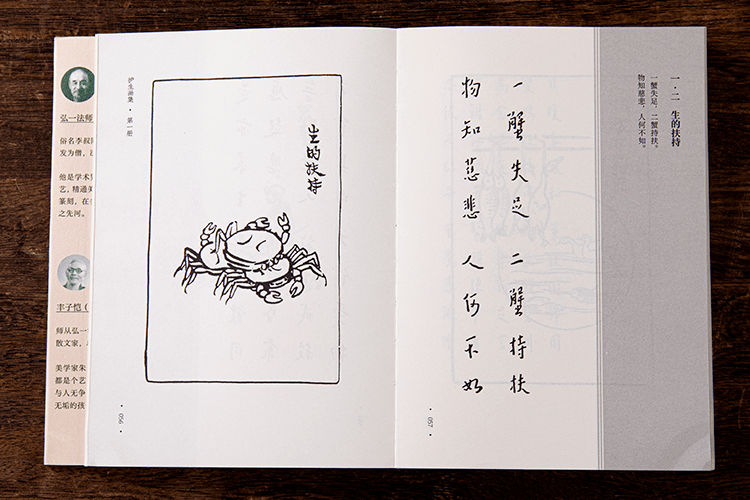 弘一法师
俗名李叔
发为僧，
他是学术
艺，精通
篆刻，在
之先河。
丰子恺（
师从弘一
散文家，
美学家朱
都是个艺
与人无争
无垢的孩
护生画集·第一册
生的扶持
·056·
一·二 生的扶持
一蟹失足，二蟹持扶。
物知慈悲，人何不如。
一蟹失足 二蟹持扶
物知慈悲 人何不如
·057·